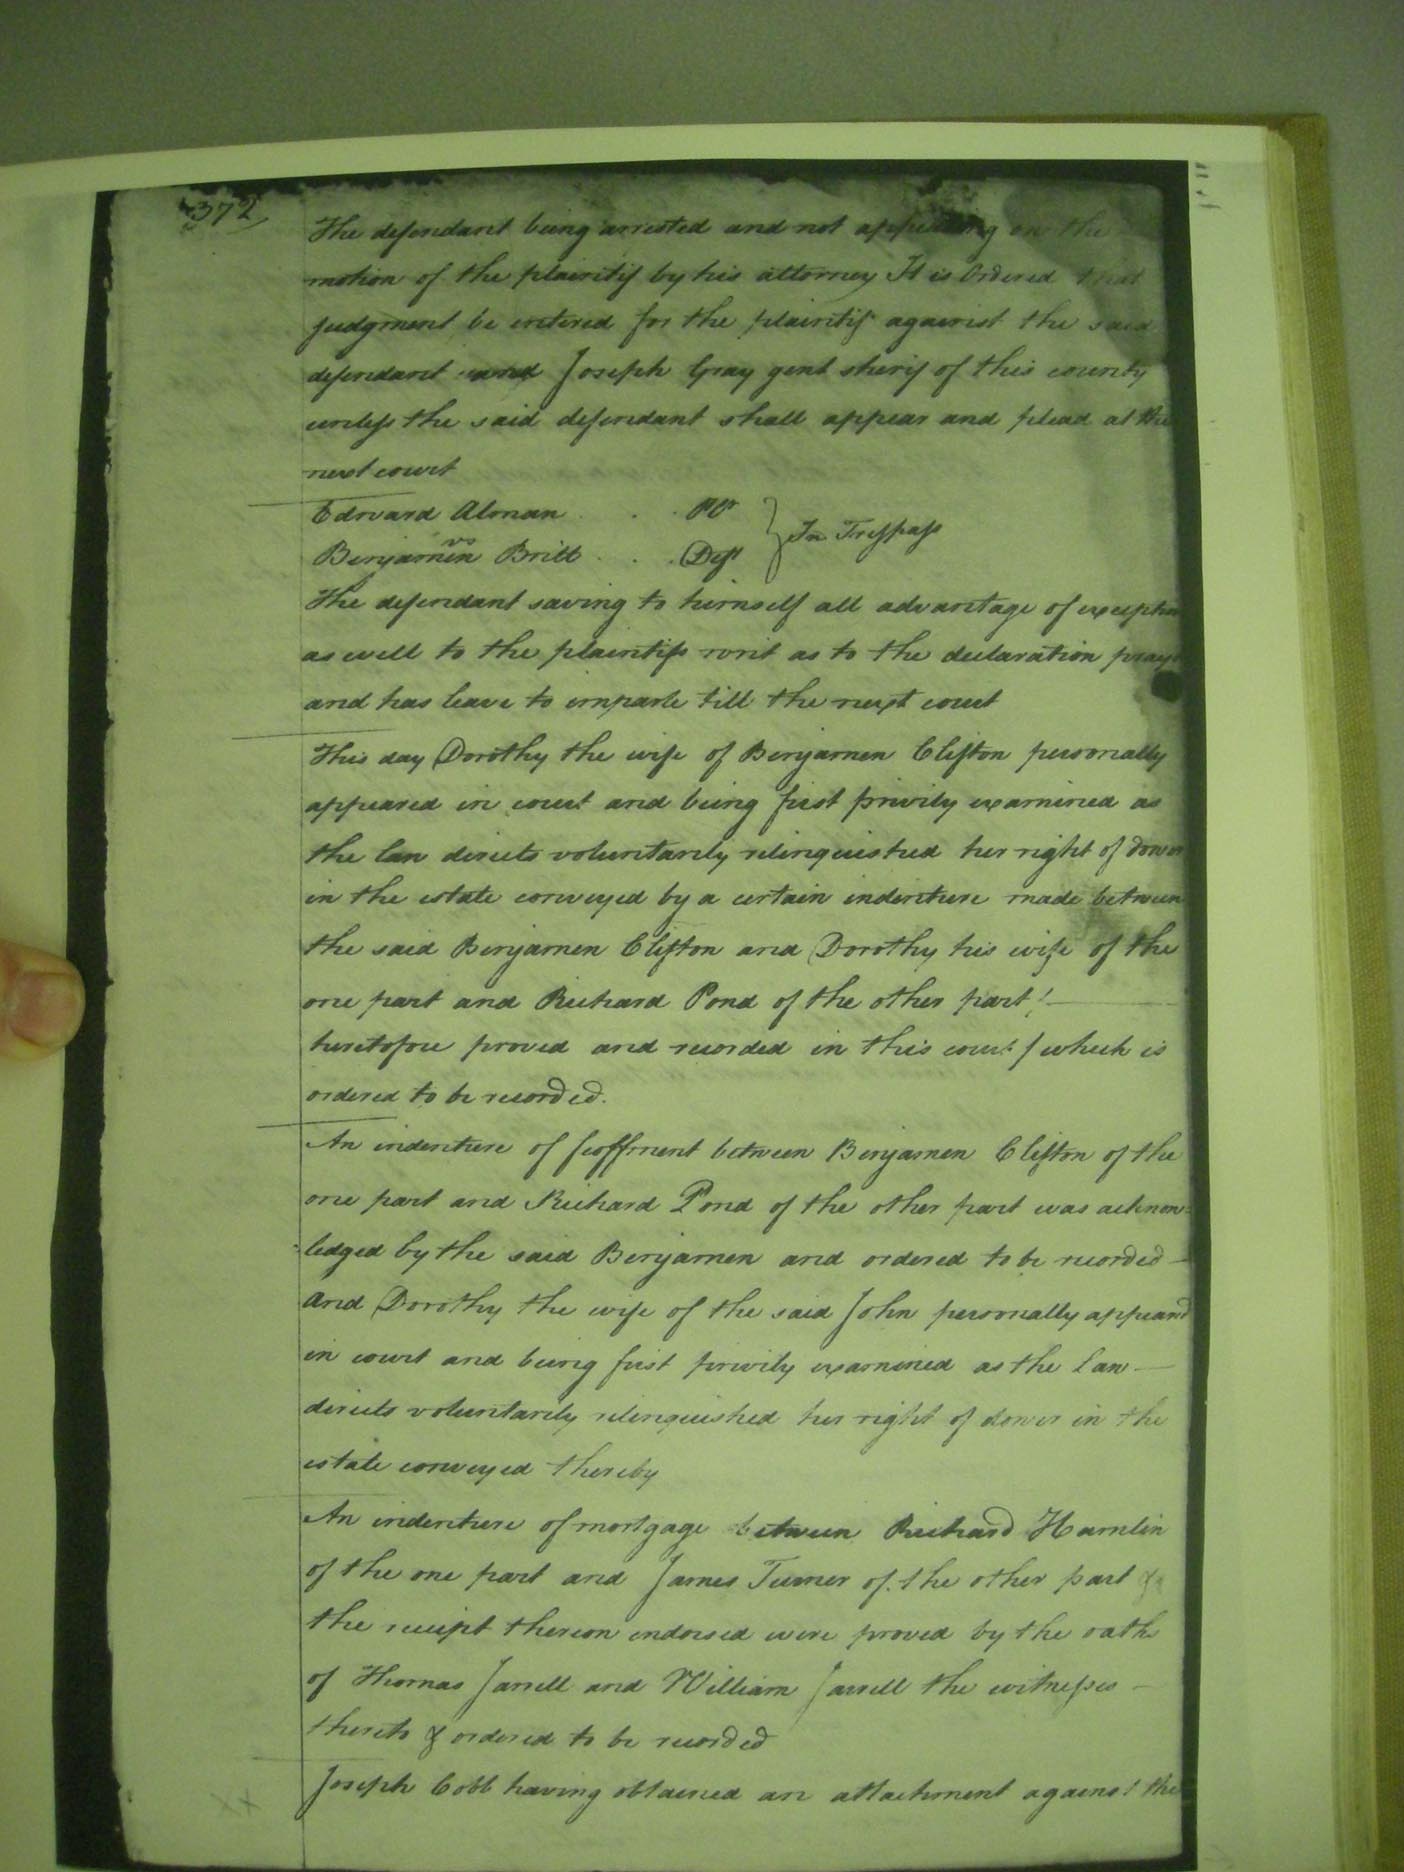 372
The defendant being arrested and not appearing on the
motion of the plaintif by his attorney It is Ordered that
judgment be entered for the plaintif against the said
defendant and Joseph Gray gent sherif of this county
unless the said defendant shall appear and plead at the
next court
Edward Alman . . . Plt
vs } In Trespass
Benjamen Britt . . . Deft
The defendant saving to himself all advantage of exception
as well to the plaintifs writ as to the declaration prays
and has leave to imparle till the next court
This day Dorothy the wife of Benjamen Clifton personally
appeared in court and being first privily examined as
the law directs voluntarily relinquished her right of dower
in the estate conveyed by a certain indenture made between
the said Benjamen Clifton and Dorothy his wife of the
one part and Richard Pond of the other part /
heretofore proved and recorded in this court / which is
ordered to be recorded.
An indenture of feoffment between Benjamen Clifton of the
one part and Richard Pond of the other part was acknow=
=ledged by the said Benjamen and ordered to be recorded
And Dorothy the wife of the said John personally appeard
in court and being first privily examined as the Law
directs voluntarily relinquished her right of dower in the
estate conveyed thereby
An indenture of mortgage between Richard Hamlin
of the one part and James Turner of the other part &
the receipt thereon endorsed were proved by the oaths
of Thomas Jarrell and William Jarrell the witnesses
thereto & ordered to be recorded
Joseph Cobb having obtained an attachment against the